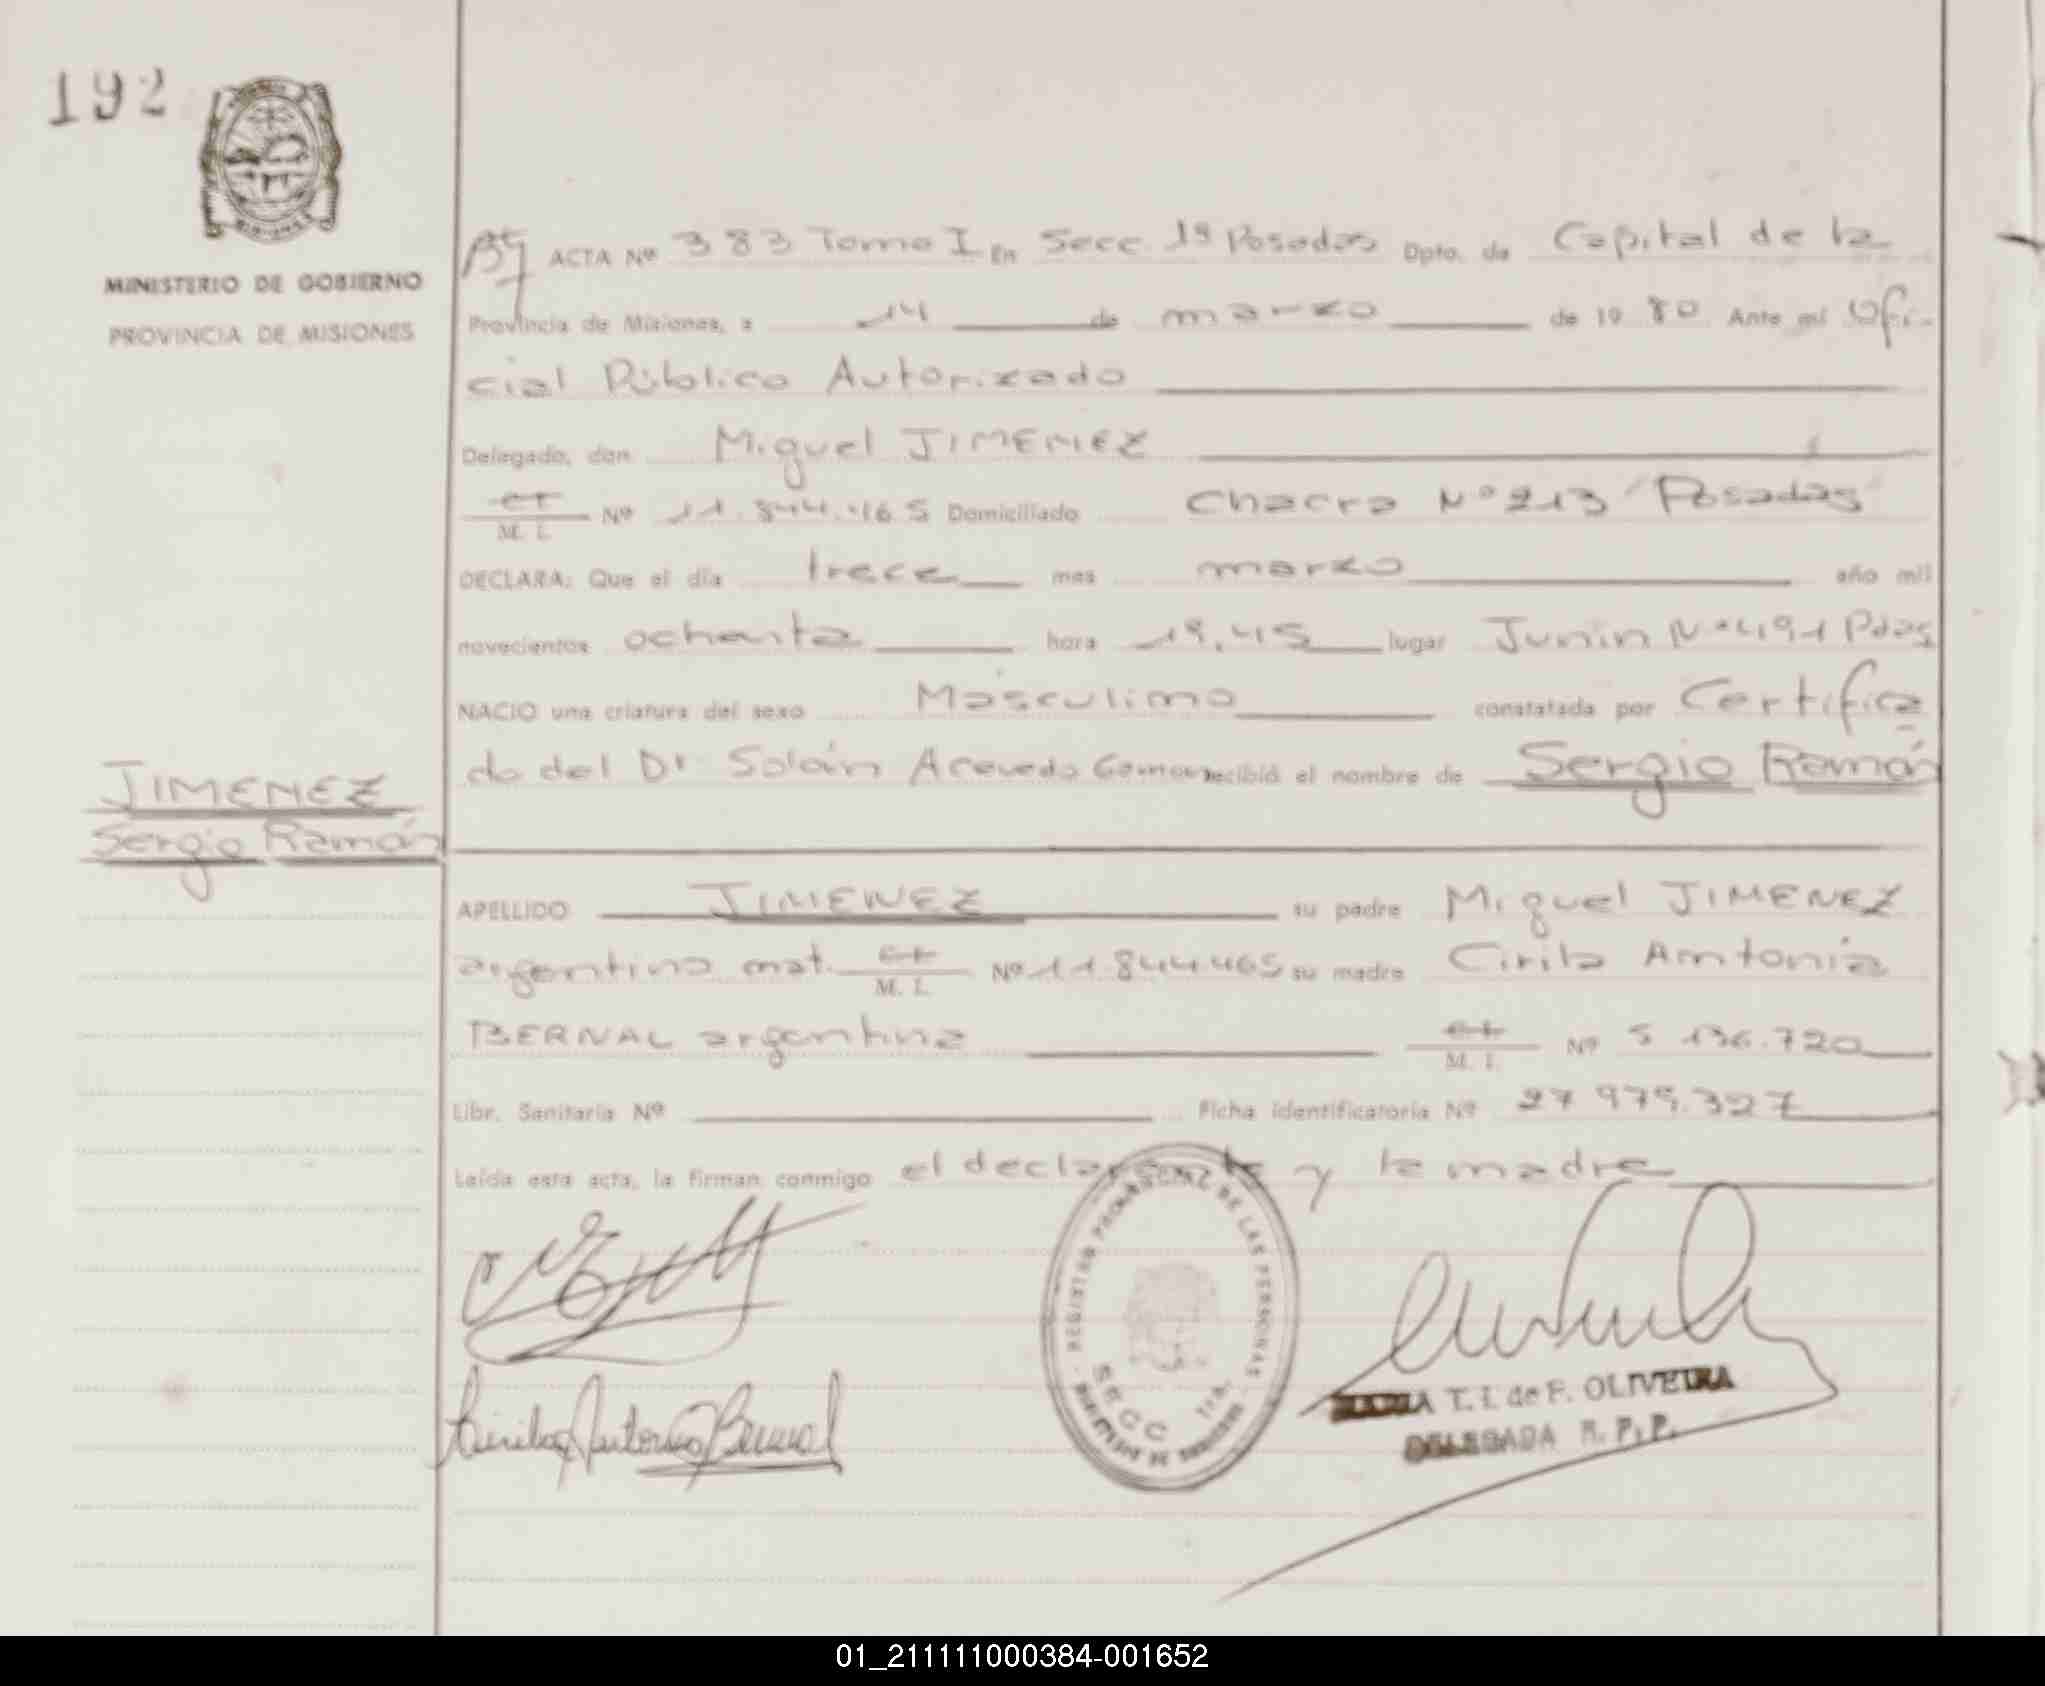 192
MINISTERIO DE GOBIERNO
PROVINCIA DE MISIONES
ACTA Nº 383 Tomo I En Secc. 1ª Posadas Dpto. de Capital de la
Provincia de Misiones, a 14 de marzo de 1980 Ante mí Ofi-
cial Público Autorizado
Delegado, don Miguel JIMENEZ
M. I. Nº 11.844.465 Domiciliado Chacra Nº 213 Posadas
DECLARA: Que el día trece mes marzo año mil
novecientos ochenta hora 19,45 lugar Junín Nº 491 Pdas
NACIO una criatura del sexo Masculino constatada por Certifica
do del Dr Solán Acevedo recibió el nombre de Sergio Ramón
JIMENEZ
Sergio Ramón
APELLIDO JIMENEZ su padre Miguel JIMENEZ
argentino mat. M. I. Nº 11.844.465 su madre Cirila Antonia
BERNAL argentina M. I. Nº 5 136.720
Libr. Sanitaria Nº Ficha identificatoria Nº 27 979.327
Leída esta acta, la firman conmigo el declarante y la madre
REGISTRO PROVINCIAL DE LAS PERSONAS
SECC 1ra.
MINISTERIO DE GOBIERNO
Cirila Antonia Bernal
T. I. de F. OLIVEIRA
DELEGADA R. P. P.
01_211111000384-001652